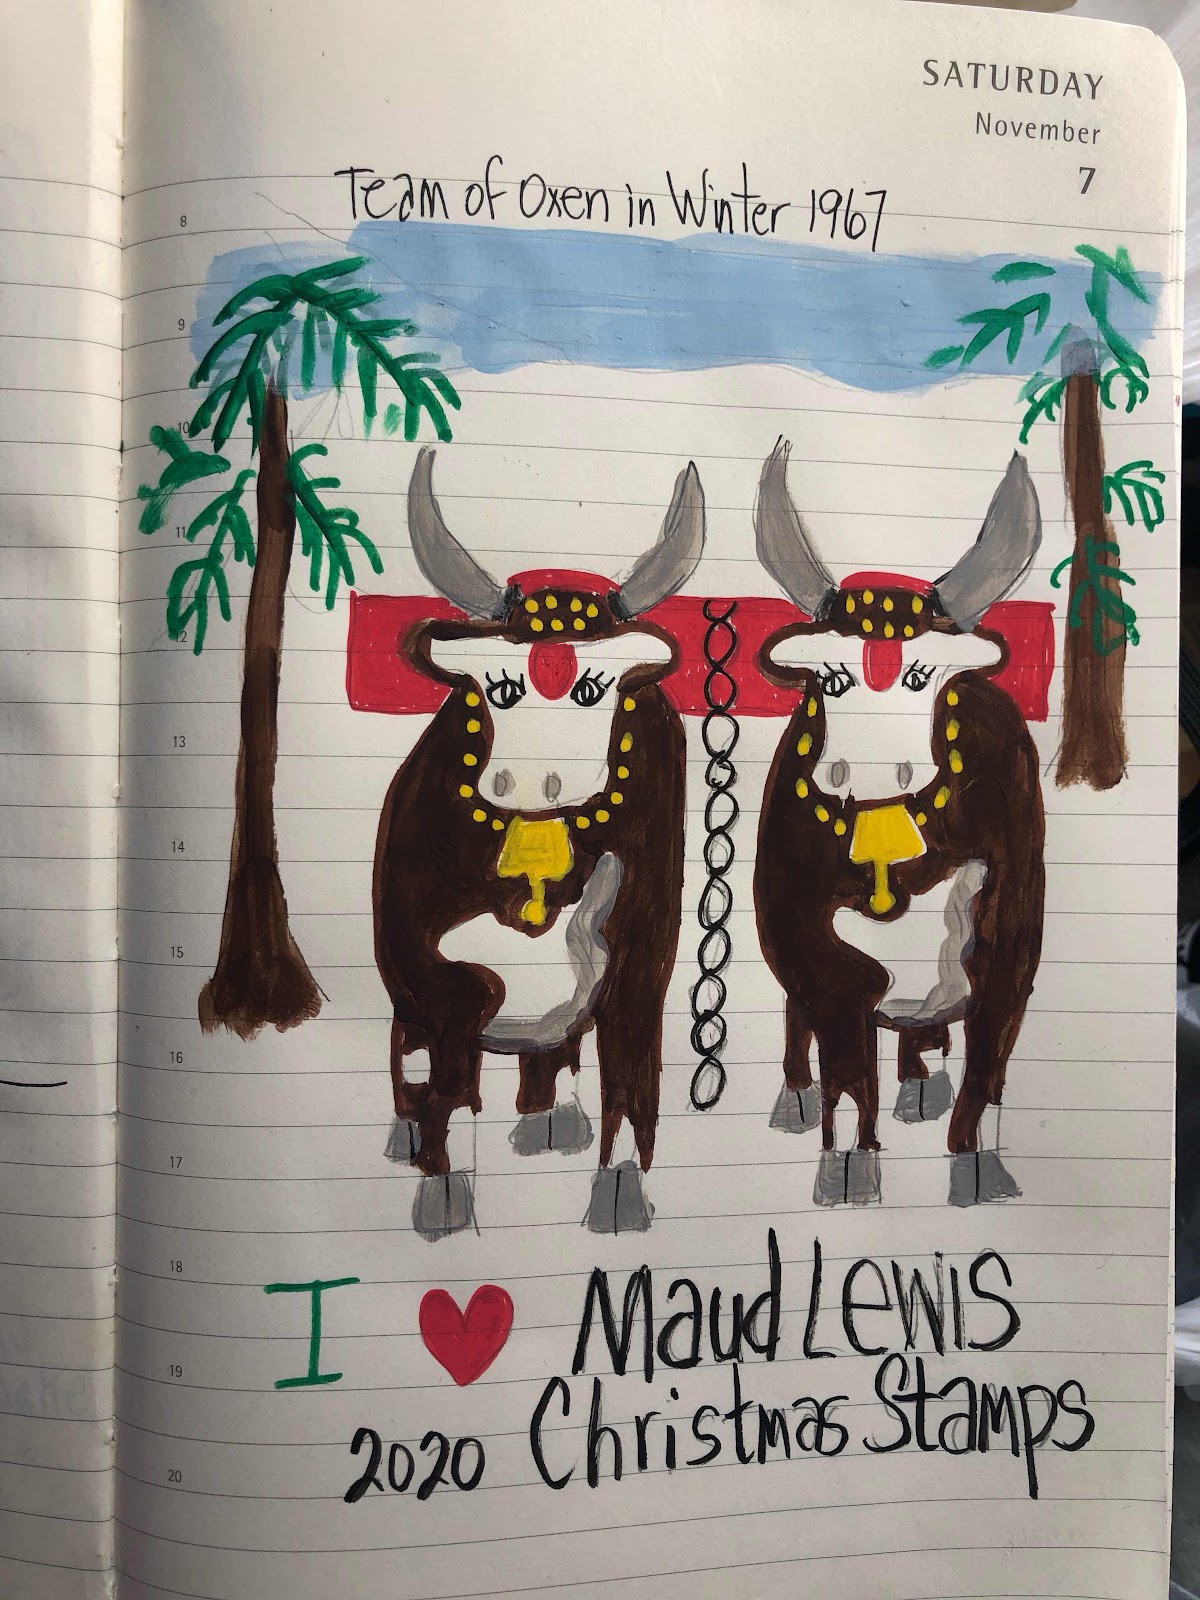 SATURDAY
November
7
Team of Oxen in Winter 1967
8
9
10
11
12
13
14
15
16
17
18
I ♥ Maud Lewis
19
2020 Christmas Stamps
20